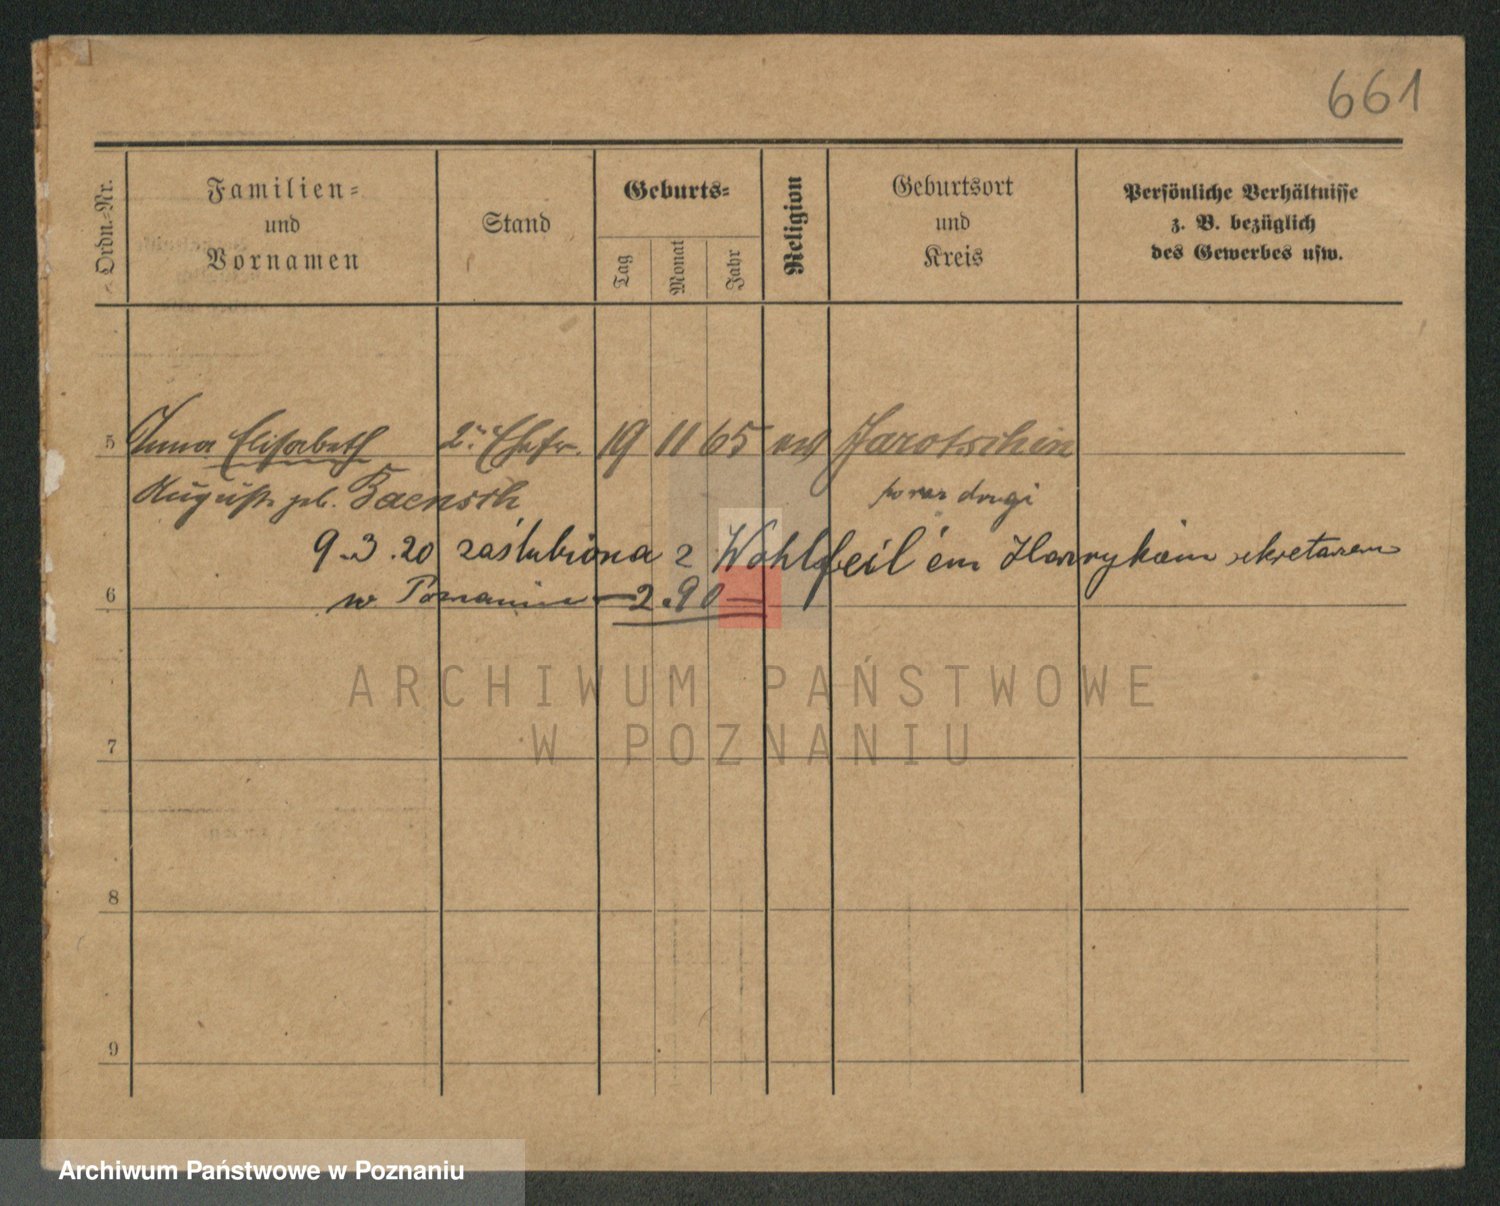 661
Ordn.-Nr.
Familien-
und
Vornamen
Stand
Geburts-
Tag
Monat
Jahr
Religion
Geburtsort
und
Kreis
Persönliche Verhältnisse
z. B. bezüglich
des Gewerbes usw.
5 Anna Elisabeth 2. Ehefr. 19 11 65 ev Jarotschin
Auguste geb. Baensch po raz drugi
9.3.20 zaślubiona z Wohlfeil'em Harrykiem sekretarzem
6 w Poznaniu — 2.90 —
ARCHIWUM PAŃSTWOWE
W POZNANIU
7
8
9
Archiwum Państwowe w Poznaniu